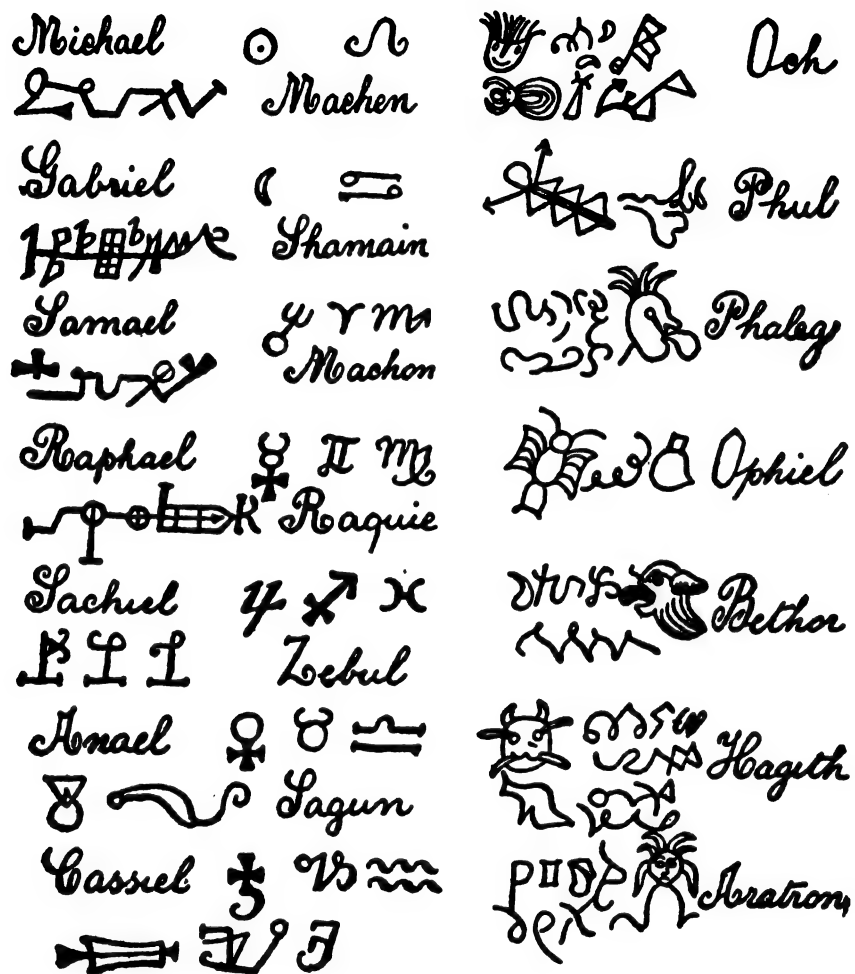 Michael
Machen
Gabriel
Shamain
Samael
Machon
Raphael
Raquie
Sachiel
Zebul
Anael
Sagun
Cassiel
Och
Phul
Phaleg
Ophiel
Bethor
Hagith
Aratron,